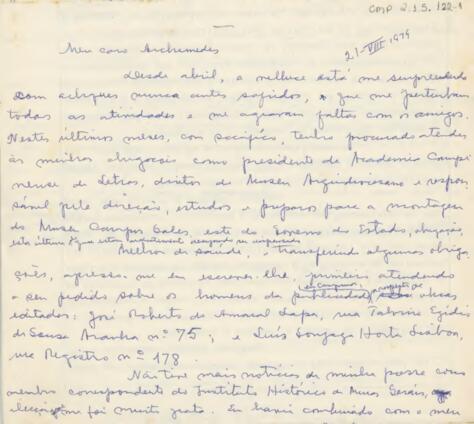 CMP 2.1.5.122-1
21-VIII-1979
Meu caro Archimedes
Desde abril, a velhice está me surpreendendo
com achaques nunca antes sofridos, que me perturbam
todas as atividades e me agravam faltas com os amigos.
Nestes últimos meses, com sacrifício, tenho procurado atender
às minhas obrigações como presidente da Academia Campi
nense de Letras, diretor do Museu Arquidiocesano e respon
sável pela direção, estudos e preparos para a montagem
do Museu Campos Sales, este do Governo do Estado, obrigação,
esta última
Melhor de saúde, e transferindo algumas obriga
ções, apresso-me em escrever-lhe, primeiro atendendo
a seu pedido sobre os homens da publicidade obras
editadas: José Roberto do Amaral Lapa, rua Tabrino Egídio
de Sousa Aranha nº 75; e Luís Gonzaga Horta Lisboa,
rua Registro nº 178.
Não tive mais notícias de minha posse como
membro correspondente do Instituto Histórico de Minas Gerais,
eleição me foi muito grata. Eu havia combinado com o meu